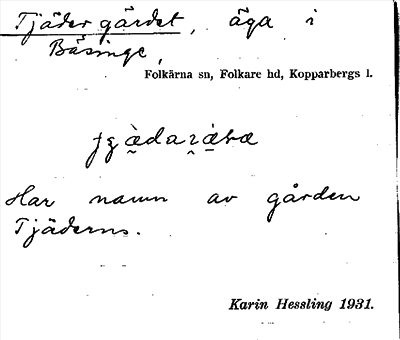 Tjädergärdet, äga i
Bäsinge,
Folkärna sn, Folkare hd, Kopparbergs l.
Har namn av gården
Tjäderns.
Karin Hessling 1931.